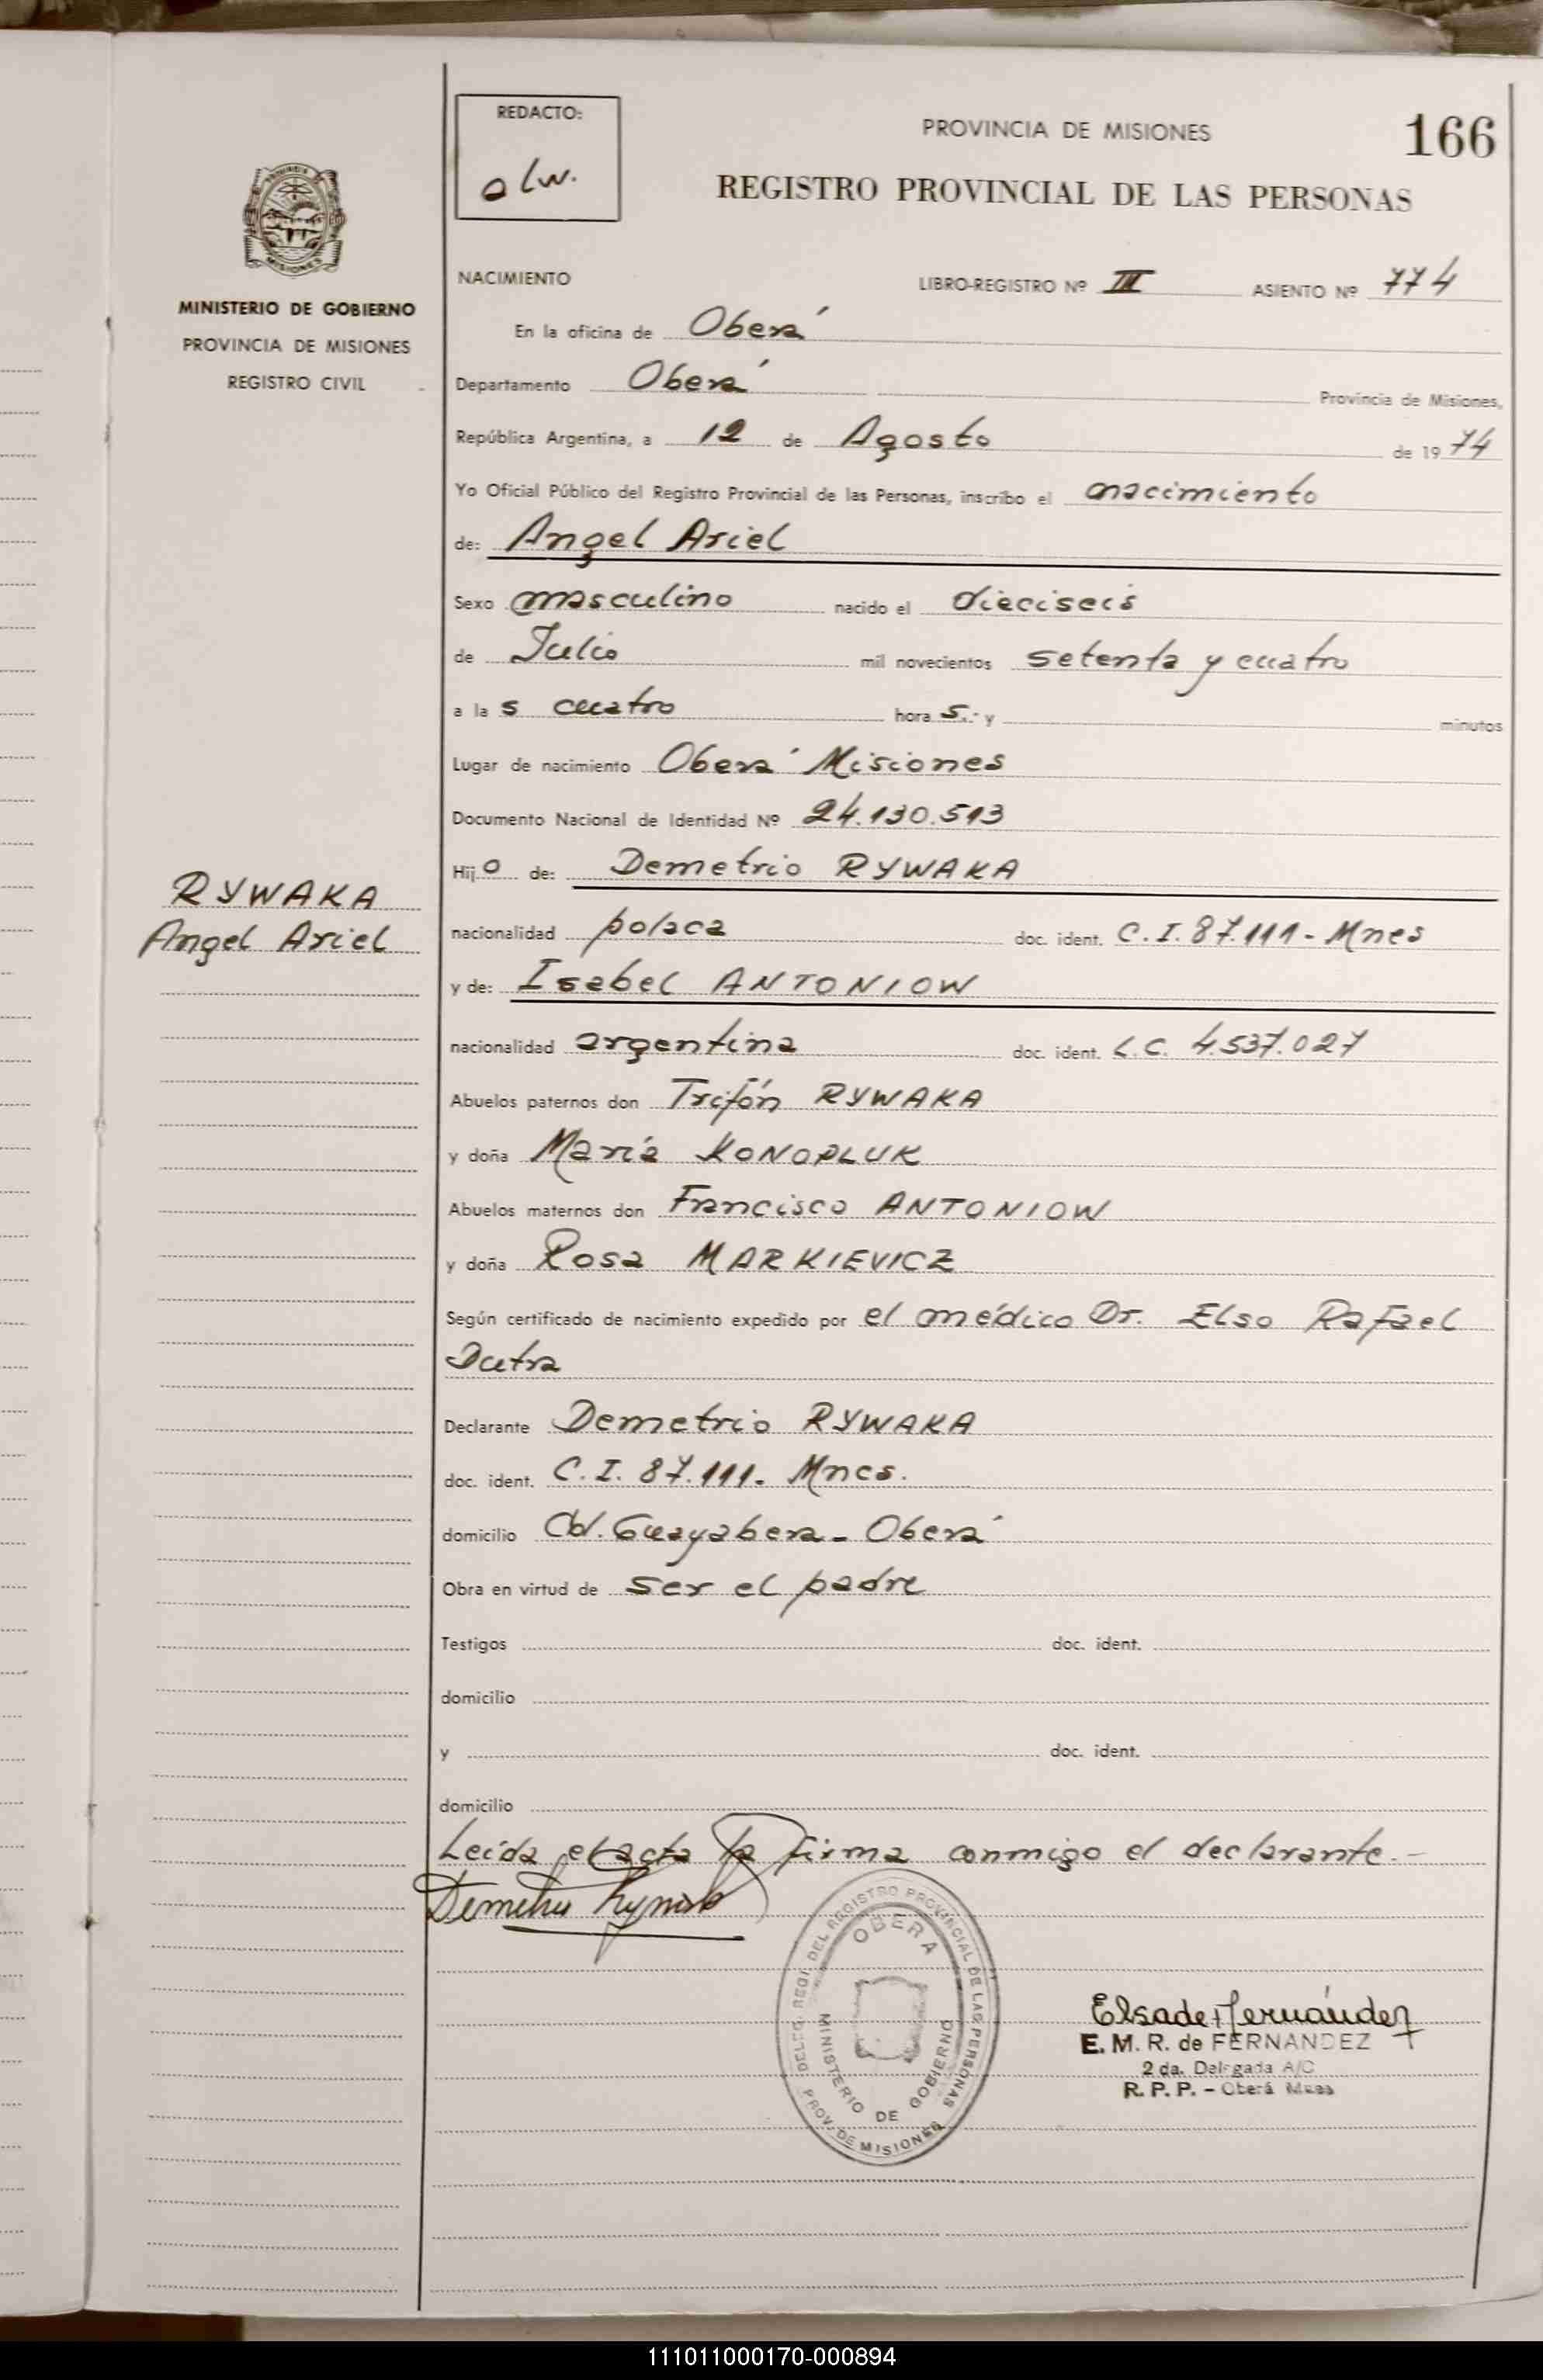 REDACTO:
olw.
PROVINCIA DE MISIONES
166
REGISTRO PROVINCIAL DE LAS PERSONAS
MISIONES
MINISTERIO DE GOBIERNO
PROVINCIA DE MISIONES
REGISTRO CIVIL
NACIMIENTO LIBRO-REGISTRO Nº III ASIENTO Nº 774
En la oficina de Oberá
Departamento Oberá Provincia de Misiones,
República Argentina, a 12 de Agosto de 1974
Yo Oficial Público del Registro Provincial de las Personas, inscribo el nacimiento
de: Angel Ariel
Sexo masculino nacido el dieciseis
de Julio mil novecientos setenta y cuatro
a las cuatro hora s.- y minutos
Lugar de nacimiento Oberá Misiones
Documento Nacional de Identidad Nº 24.130.513
Hijo de: Demetrio RYWAKA
RYWAKA
Angel Ariel
nacionalidad polaca doc. ident. C.I. 87.111- Mnes
y de: Isabel ANTONIOW
nacionalidad argentina doc. ident. L.C. 4.537.027
Abuelos paternos don Trifón RYWAKA
y doña María KONOPLUK
Abuelos maternos don Francisco ANTONIOW
y doña Rosa MARKIEVICZ
Según certificado de nacimiento expedido por el médico Dr. Elso Rafael
Dutra
Declarante Demetrio RYWAKA
doc. ident. C.I. 87.111- Mnes.
domicilio Col. Guayabera - Oberá
Obra en virtud de ser el padre
Testigos doc. ident.
domicilio
y doc. ident.
domicilio
Leída el acta la firma conmigo el declarante.-
DELEG. REGI. DEL REGISTRO PROVINCIAL DE LAS PERSONAS
OBERA
MINISTERIO DE GOBIERNO
PROV. DE MISIONES
Elsa de Fernández
E. M. R. de FERNANDEZ
2 da. Delegada A/C
R. P. P. - Oberá Mnes
111011000170-000894